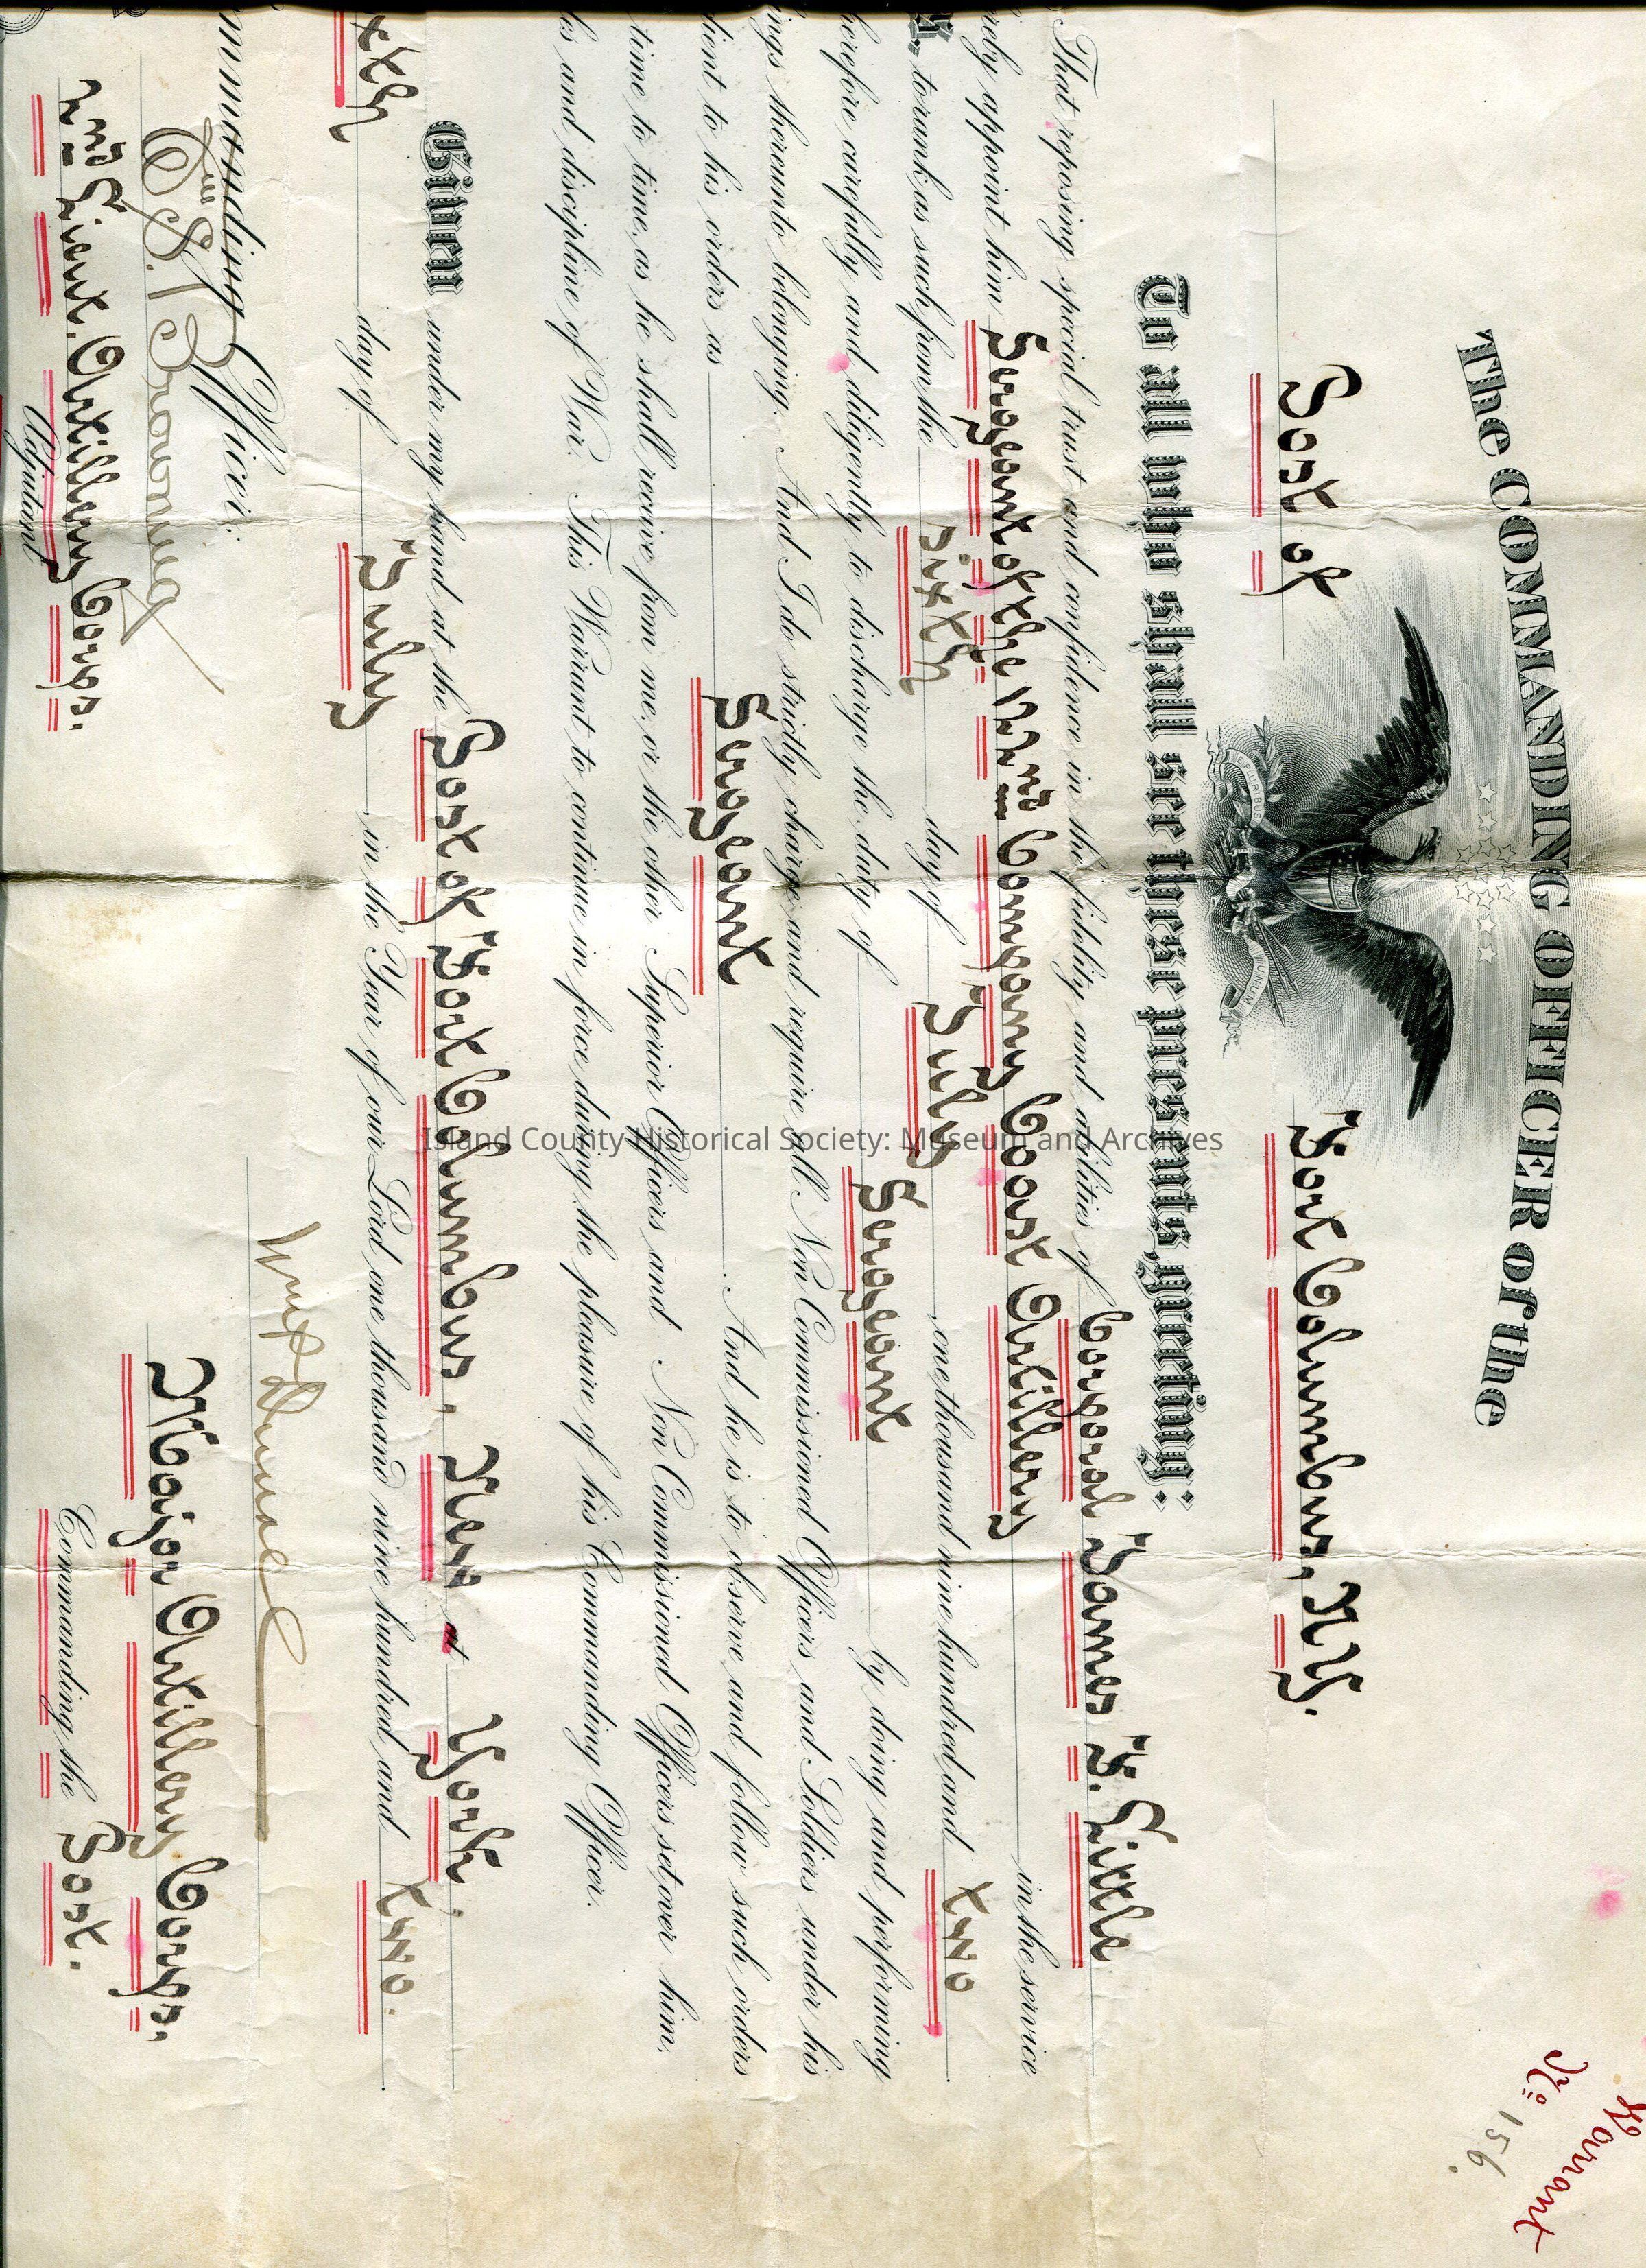 Warrant
No 156.
The COMMANDING OFFICER of the
Post of Fort Columbus, N.Y.
E PLURIBUS UNUM
To all who shall see these presents, greeting:
That reposing special trust and confidence in the fidelity and abilities of Corporal James F. Little
appoint him Sergeant of the 122nd Company Coast Artillery in the service
to rank as such from the sixth day of July one thousand nine hundred and two
carefully and diligently to discharge the duty of Sergeant by doing and performing
thereunto belonging. And I do strictly charge and require all Non Commissioned Officers and Soldiers under his
to his orders as Sergeant. And he is to observe and follow such orders
time to time, as he shall receive from me, or the other Superior Officers and Non Commissioned Officers set over him,
and discipline of War. This Warrant to continue in force during the pleasure of his Commanding Officer.
Given under my hand at the Post of Fort Columbus, New York,
day of July in the Year of our Lord one thousand nine hundred and two.
Commanding Officer:
2nd Lieut. Artillery Corps.
Adjutant
Major Artillery Corps,
Commanding the Post.
Island County Historical Society: Museum and Archives